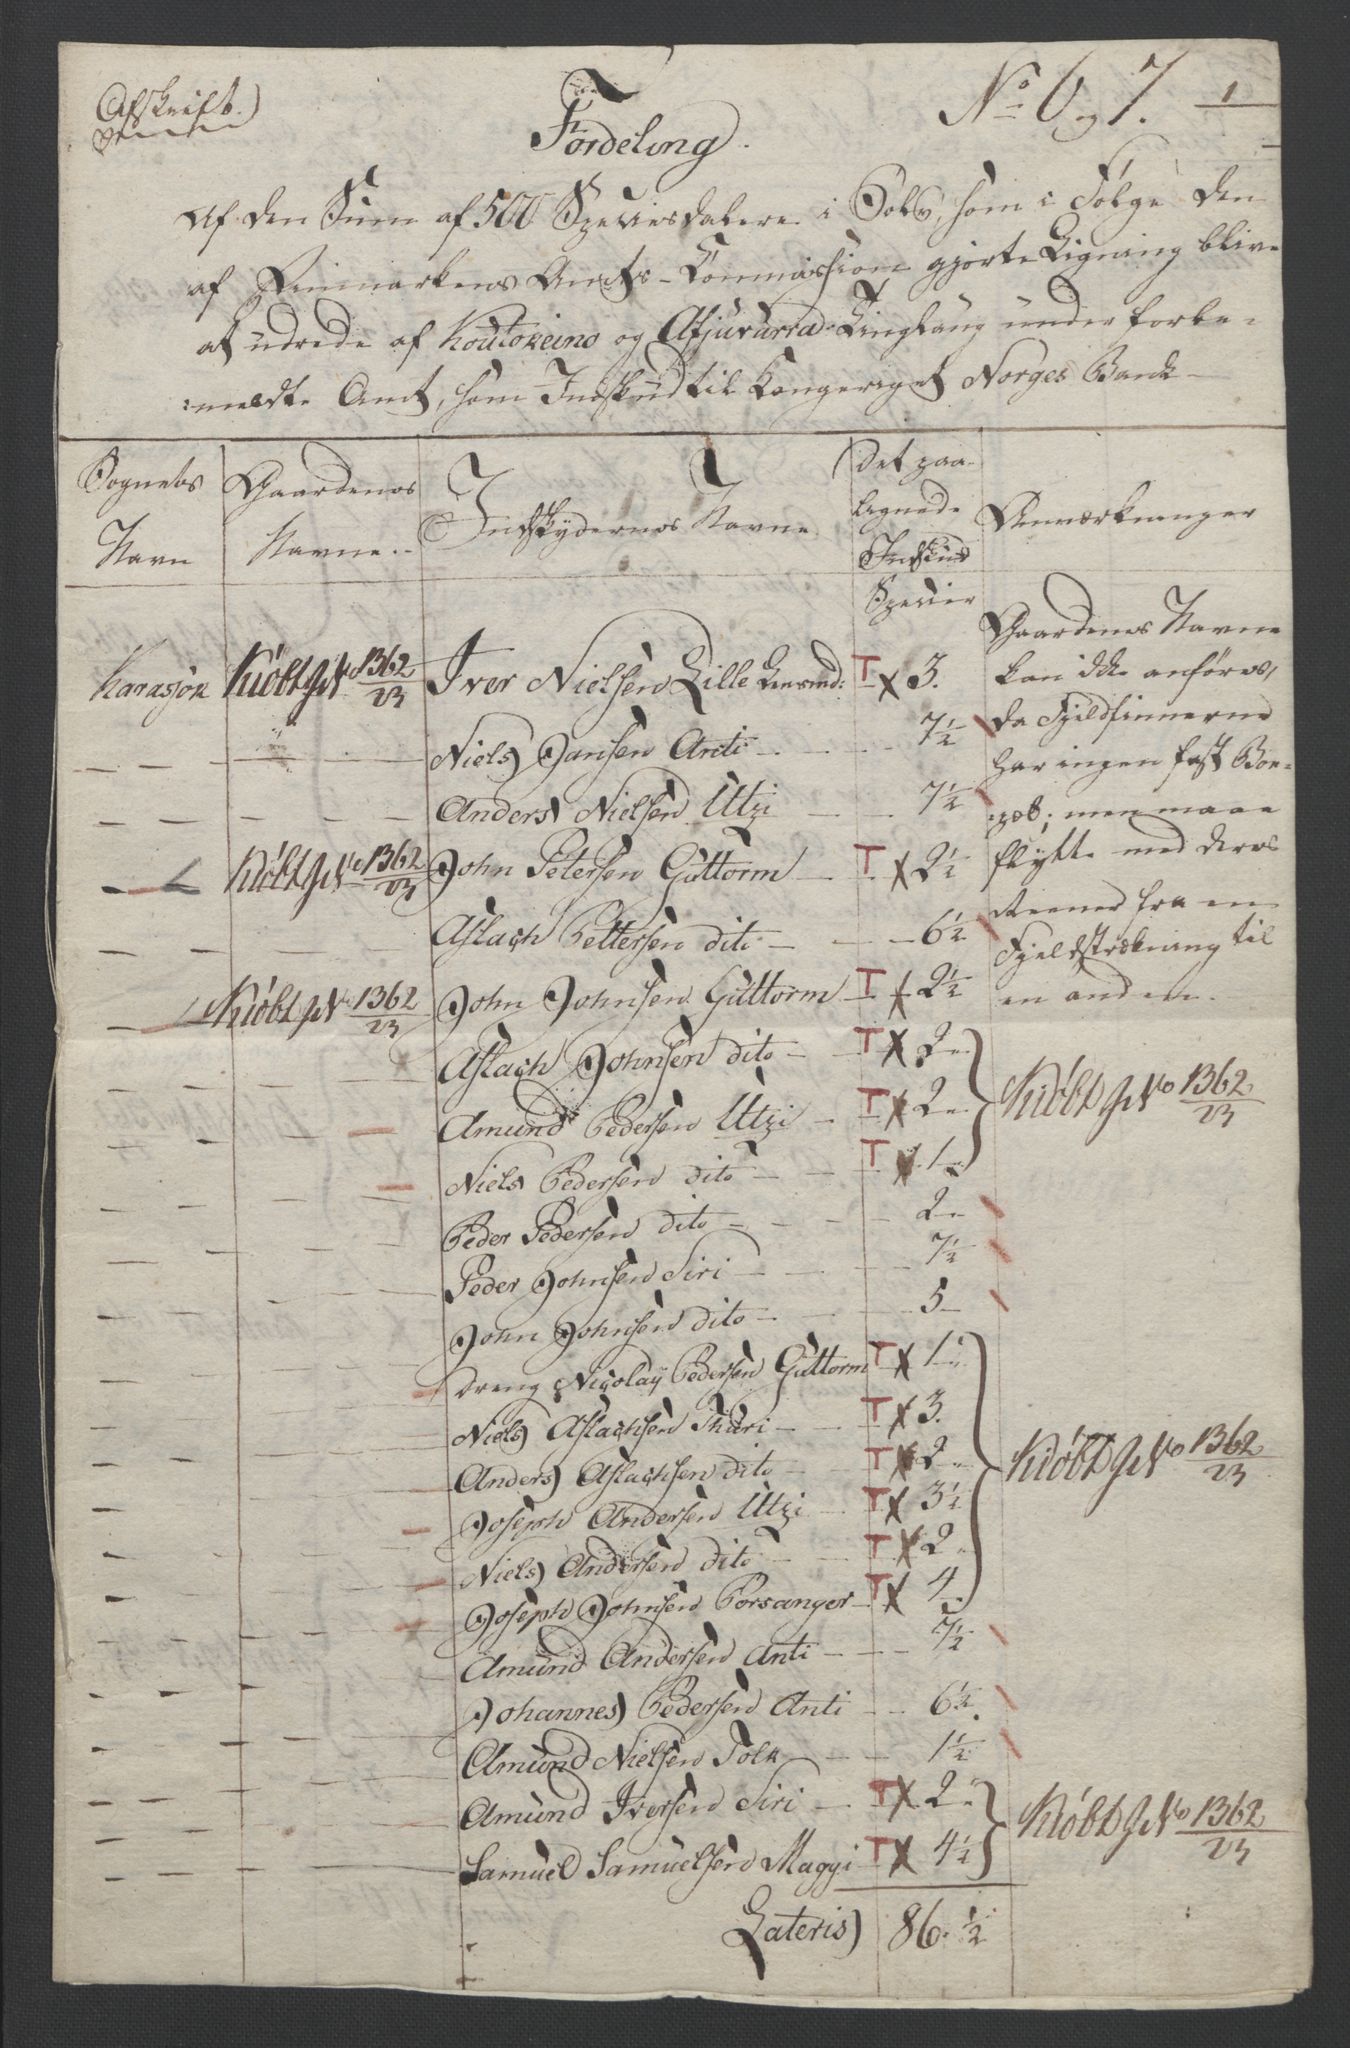 Afskrift.)
No 6 og 7.
1
Fordeling
Af den Sum af 500 Speciesdalere i Sølv, som i Følge den
af Finmarkens Amts-Commission gjorte Ligning blive
at udrede af Koutokeino og Afjuvarra Tinglaug under forbe-
:meldte Amt, som Indskud til Kongeriget Norges Bank
Sognets Navn
Gaardenes Navne.
Indskydernes Navne
Det paa-
lignede
Indskud
Specier
Anmærkninger
Karasjok Kiøbt p No 1362/23 Iver Nielsen Lille Lensmd: T X 3.
Niels Jansen Anti 7½
Anders Nielsen Utzi 7½
Kiøbt p No 1362/23 John Petersen Guttorm T X 2½
Aslach Pettersen dito 6½
Kiøbt p No 1362/23 John Johnsen Guttorm T X 2½
Aslach Johnsen dito T X 2
Amund Pedersen Utzi T X 2
Niels Pedersen dito T X 1
Peder Pedersen dito 2
Peder Johnsen Siri 7½
John Johnsen dito 5
Dreng Nicolay Pedersen Guttorm T X 1
Niels Aslachsen Thuri T X 3.
Anders Aslachsen dito T X 2
Joseph Andersen Utzi T X 3½
Niels Andersen dito T X 2
Joseph Johnsen Porsanger T X 4
Amund Andersen Anti 7½
Johannes Pedersen Anti 6½
Amund Nielsen Tolk 1½
Amund Iversen Siri T X 2
Samuel Samuelsen Maggi T X 4½
Lateris 86.½
Gaardenes Navne
kan ikke anføres,
da Fjeldfinnerne
har ingen fast Boe-
:pæl; men maae
flytte med deres
Reener fra en
Fjeldstrækning til
en anden.
Kiøbt p No 1362/23
Kiøbt p No 1362/23
Kiøbt p No 1362/23